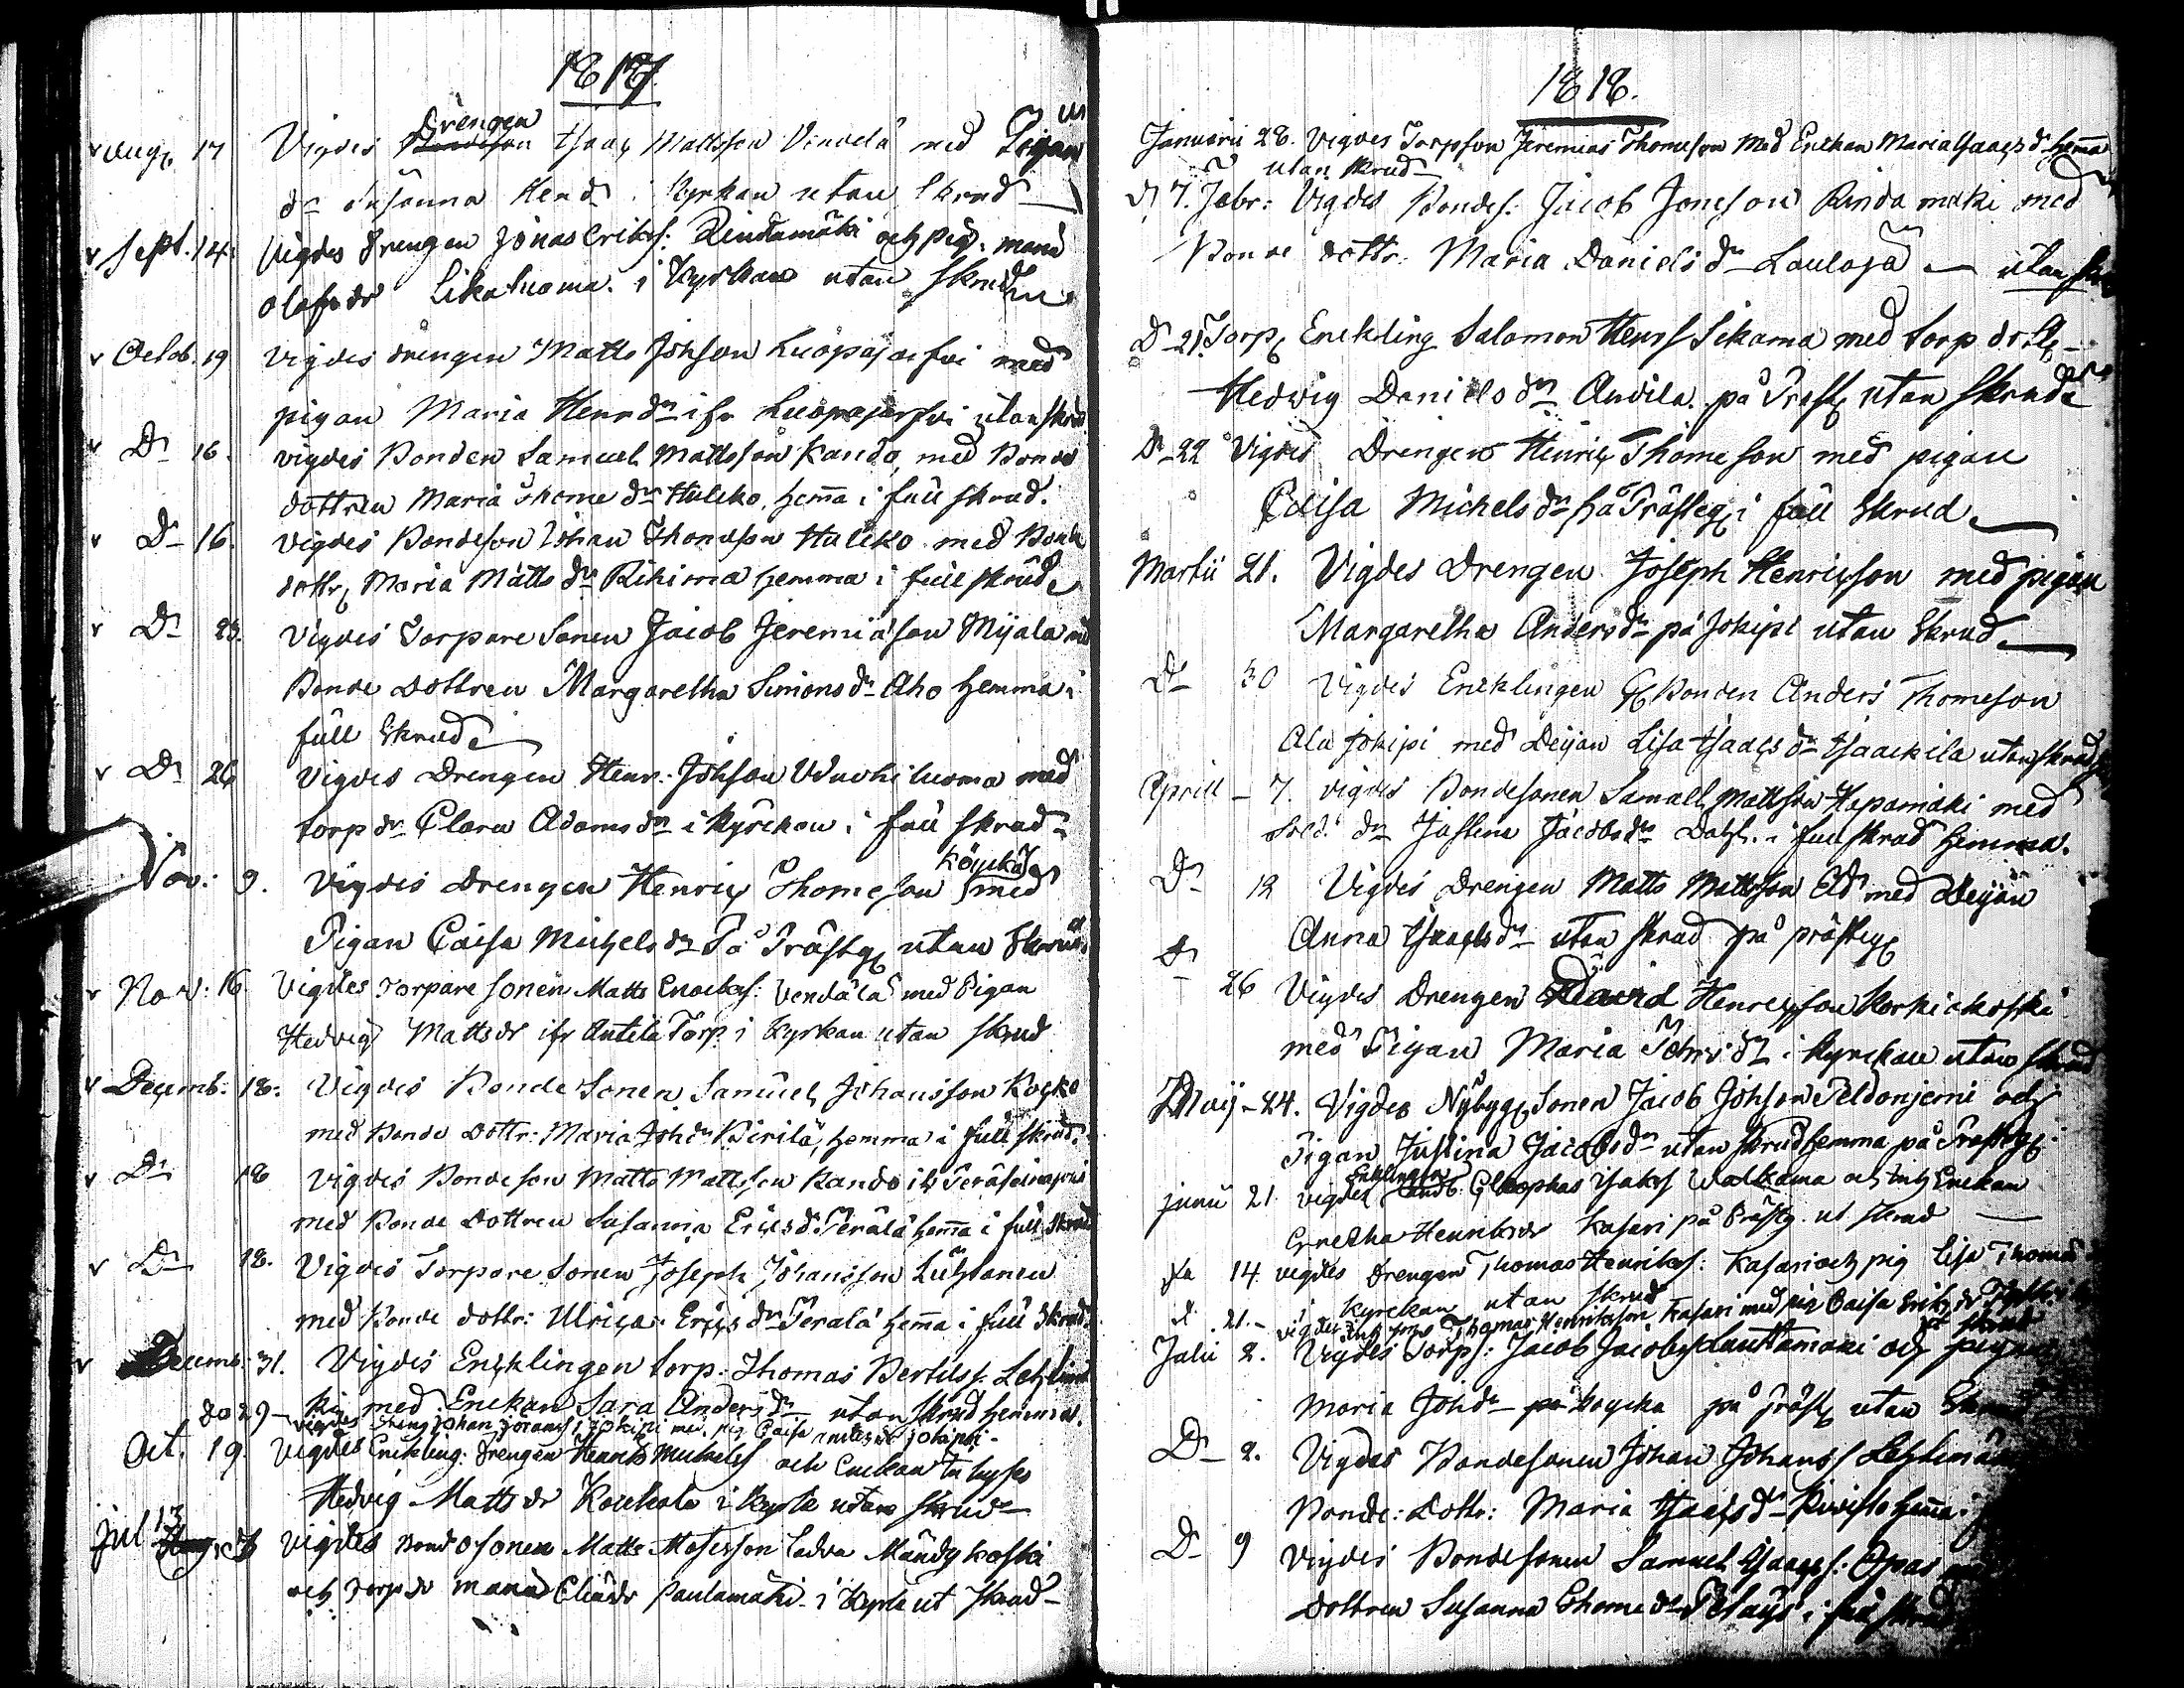 1817.
Aug. 17 Vigdes Drengen Isaac Mattsson Vendelä med Pigan
Susanna Hend. i Kyrkan utan Skrud
Sept. 14. Vigdes Drengen Jonas Eriks: Rindamäki och pig. Maria
Olofsdr Likaluoma. i Kyrkan utan Skrud
Octob. 19 Vigdes drengen Matts Johson Luopajärfvi med
pigan Maria Henr dr ifr Luopajärfvi utan skrud
Dr 16. Vigdes Bonden Samuel Mattsson Kando, med Bonde
dottren Maria Thome dr Huleko. hema i full skrud.
Dr 16. Vigdes Bondeson Johan Thomeson Huleko med Bonde
dottr Maria Matts dr Rihima hemma i full skrud
Dr 23. Vigdes Torpare Sonen Jacob Jeremiason Myala med
Bonde dottren Margaretha Simons dr Aho hemma i
full Skrud
Dr 26 Vigdes Drengen Henr: Johson med
torp dr Clara Adams dr i Kyrckan i full skrud
Nov: 9. Vigdes Drengen Henric Thomeson Köyckä med
Pigan Caisa Michels dr På Prästg utan Skrud
Nov: 16 Vigdes Torpare sonen Matts Enocks: Vendälä med Pigan
Hedvig Mattsdr ifr Antila Torp i Kyrkan utan skrud
Decemb: 18: Vigdes Bonde Sonen Samuel Johansson Kocko
med Bonde Dottr: Maria Joh dr Pirilä, hemma i full skrud
Dr 18 Vigdes Bondeson Matts Mattsson Kando
med Bonde Dottren Susanna Erics dr Perälä hema i full Skrud
Dr 18. Vigdes Torpare Sonen Joseph Johansson
med Bonde dottr: Ulrica Erics dr Peralä hema i full Skrud
Decemb: 31. Vigdes Encklingen torp. Thomas Bertils
ki med Enckan Sara Anders dr utan skrud hemma.
do 29 Vigdes Dreng Johan Jokipi med pig Caisa Jokipi
Oct. 19. Vigdes Enckling: Drengen Henric Michels och Enckan
Hedvig Matts dr Kouckola i Kyrk utan skrud
Jul 13 Vigdes Bondesonen Matts Mosesson Ladva Mändykoski
och Torp dr Maria Eliædr Paulamäki i Kyrk ut skrud
1818.
Januarii 28. Vigdes Torpson Jeremias Thomeson Med Enckan Maria Isaacs dr hema
utan skrud
D 7. Febr: Vigdes Bondes: Jacob Joneson Rindamäki med
Bonde dottr: Maria Daniels dr Lauloja utan skrud
D 21. Torp Enckling Salomon Henrs Sikama med torp dr
Hedwig Daniels dr Andila. på Präst utan Skrud
Dr 22 Vigdes Drengen Henric Thomeson med pigan
Caisa Michels dr på Prästeg i full Skrud
Martii 21. Vigdes Drengen Joseph Henricson med pigan
Margaretha Anders dr på Jokipi utan Skrud
Dr 30 Vigdes Encklingen Bonden Anders Thomeson
Ala Jokipi med Deijan Lisa Isaacs dr Isaackila utan skrud
Aprill 7. Vigdes Bondesonen Samuel Mattson Hapamäki med
Sold. dr Justina Jacobs dr Dahl. i full skrud hemma.
Dr 12 Vigdes Drengen Matts Mattsson Ed med Deijan
Anna Isaacs dr utan skrud på prästeg
D 26 Vigdes Drengen David Henricson Korkiakoski
med Pigan Maria Johs dr i Kyrckan utan skrud
Maij 24. Vigdes Nybygg Sonen Jacob Johson Peldonjemi och
Pigan Justina Jacobs dr utan skrud hemma på Prästeg
Junii 21 Vigdes Enklingen Cleophas Isaks Walkama och Enckan
Gretha Henriksdr Kasari på Prästg. ut skrud
14 Vigdes Drengen Thomas Henriks: Kasari och pig Lisa Thomæ
i Kyrckan utan skrud
21. Vigdes Thomas Henriksson Kasari med pig Caisa Eriks dr
ut skrud
Julii 2. Vigdes Torps: Jacob Jacobs Lauttamäki och pigan
Maria Joh dr Koycka på Präst utan Skrud
Dr 2. Vigdes Bondesonen Johan Johans
Bonde: Dottr: Maria Isaacs dr Kivisto hema i
Dr 9 Vigdes Bondesonen Samuel Isaacs: Opas
dottren Susanna Thome dr i full skrud